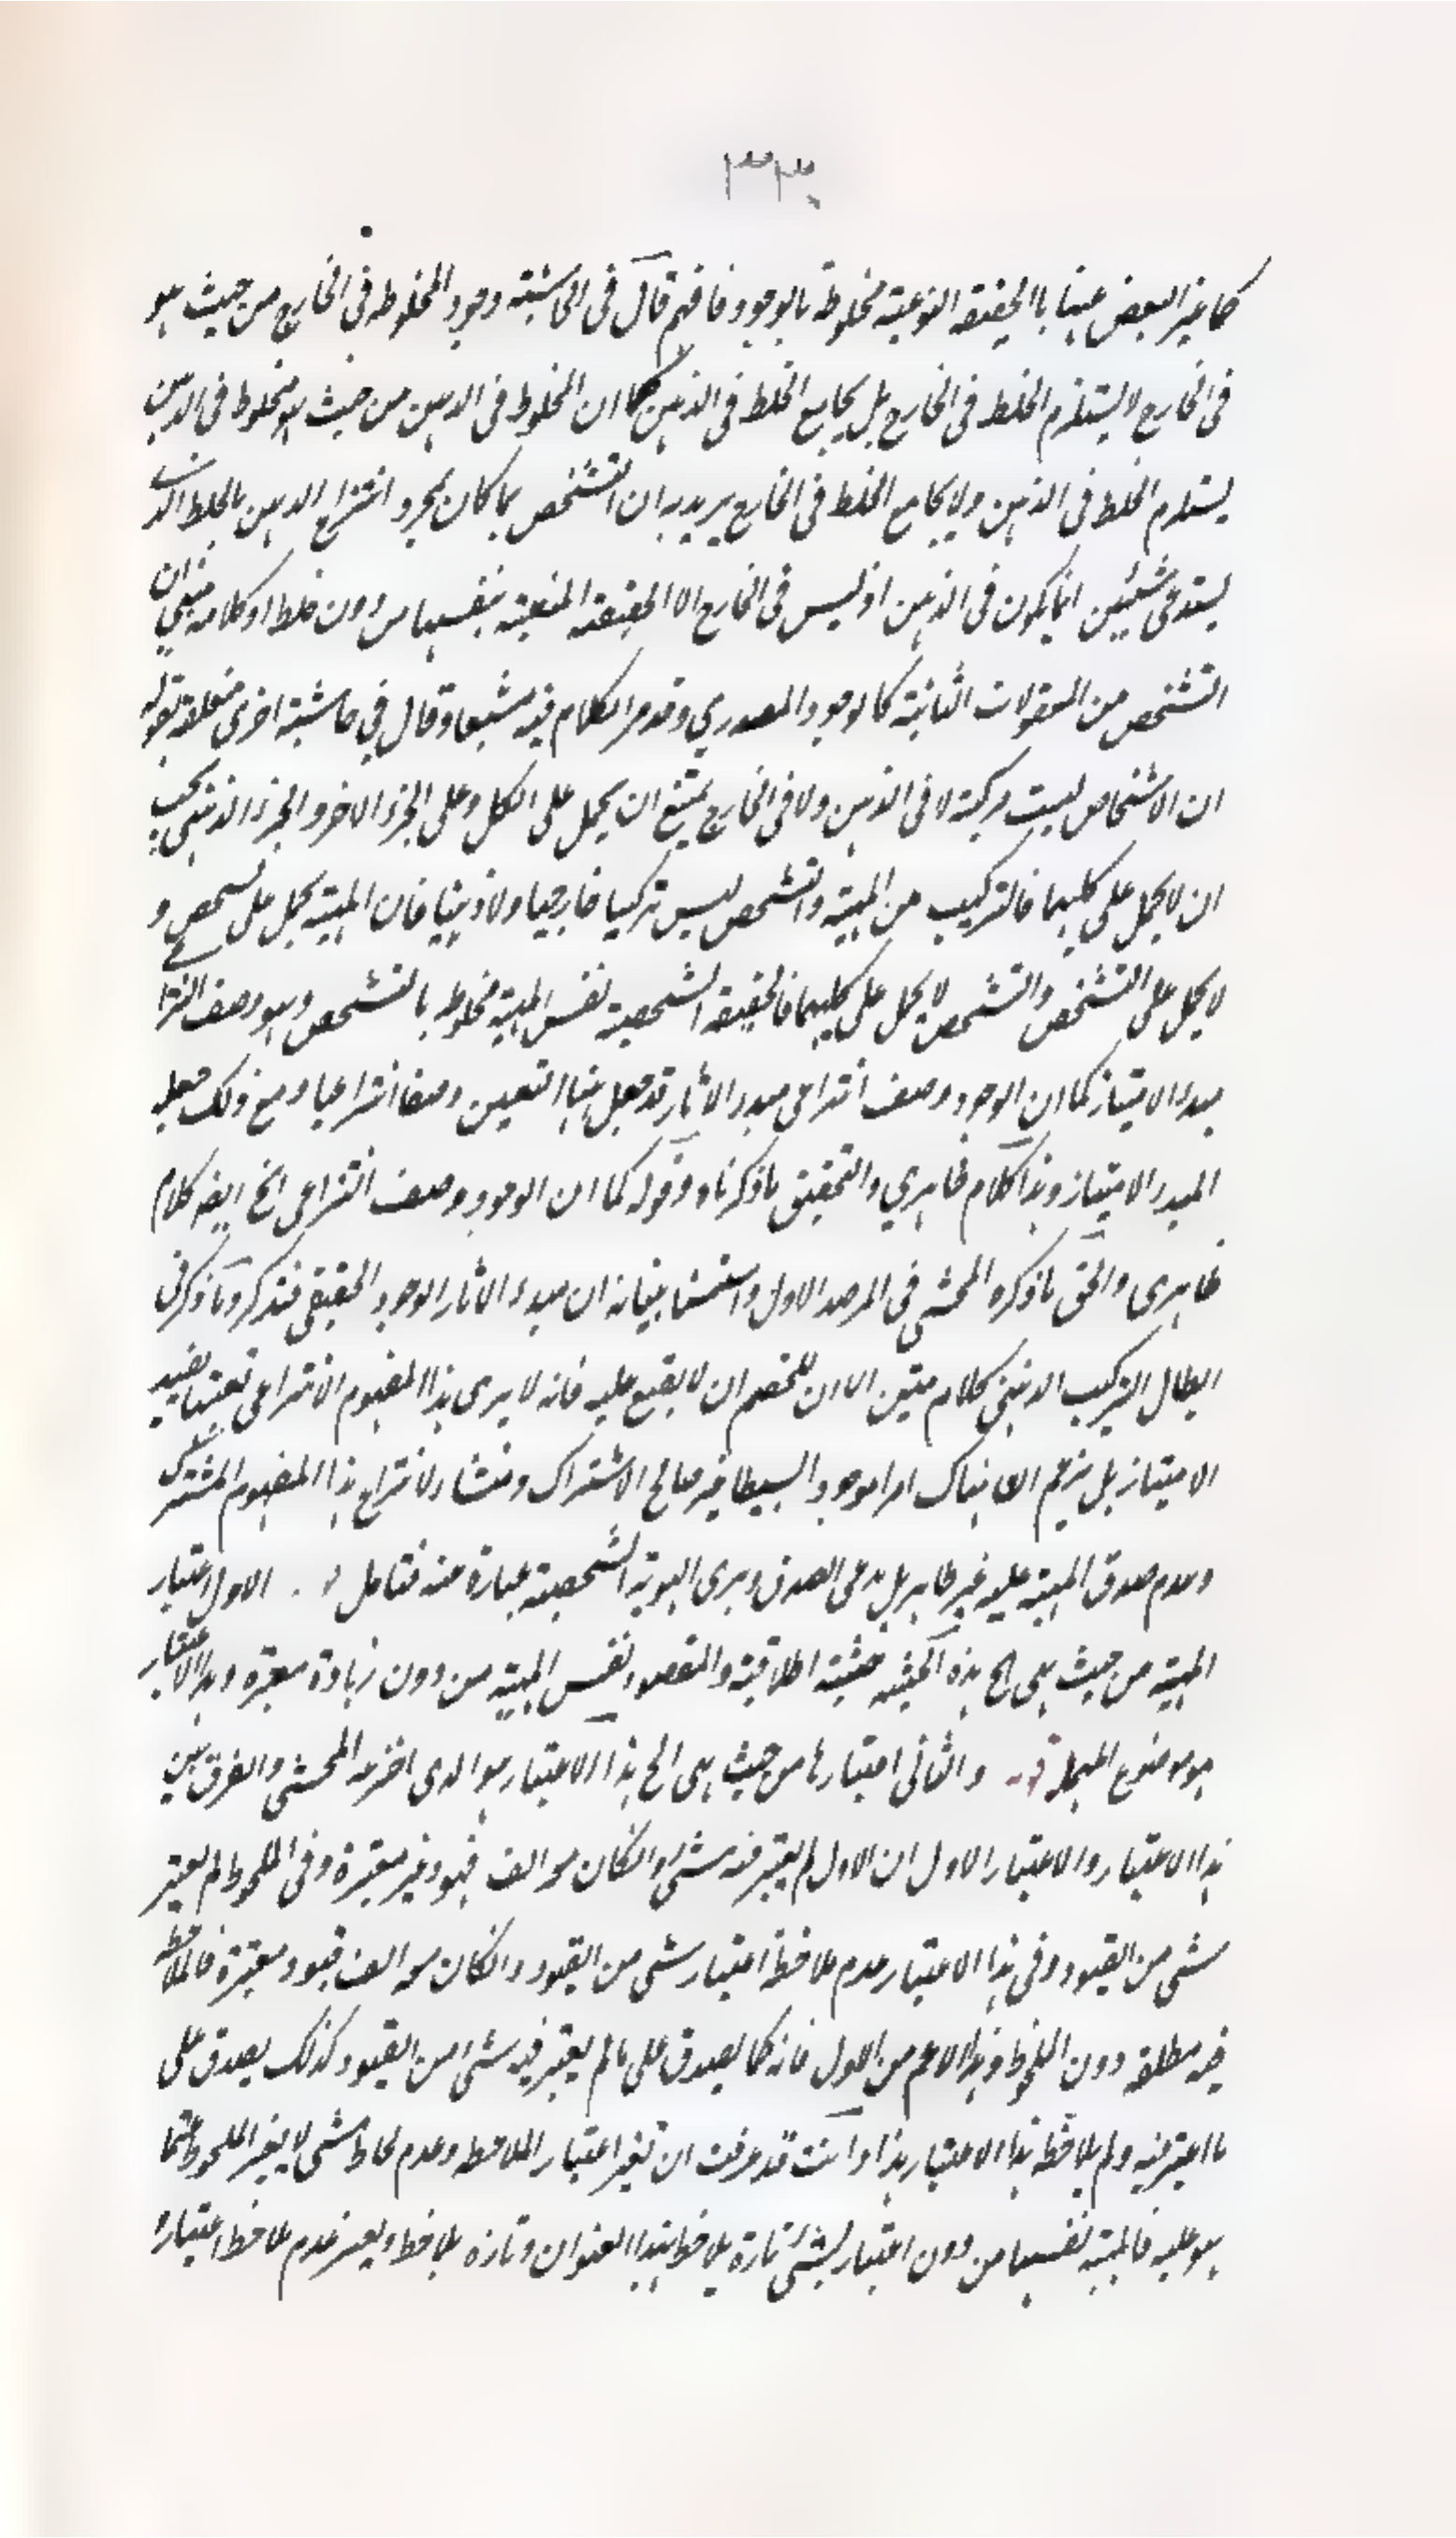 كما غير البعض عينا بالحقيقة النوعية مخلوطة بالوجود فافهم قال فى الحاشية وجود المخلوطه فى الخارج من حيث هو
فى الخارج لا يستلزم الخلط فى الخارج بل يجامع الخلط فى الذهن كما ان المخلوط فى الذهن من حيث هو مخلوط فى الذهن
يستلزم الخلط فى الذهن ولا يجامع الخلط فى الخارج يريد به ان التشخص بما كان بمجرد انتزاع الذهن بالخلط الذى
يستدعى شيئين انما يكون فى الذهن اذ ليس فى الخارج الا الحقيقة المتعينة بنفسها من دون خلط او كلامه مبنى ان
التشخص من المعقولات الثانية كالوجود المصدري وقد مر الكلام فيه مشبعا وقال في حاشية اخرى متعلقة بقوله
ان الاشخاص ليست مركبة لا فى الذهن ولا فى الخارج يمتنع ان يحمل على الكل وعلى الجزء الاخر والجزء الذهنى يجب
ان لا يحمل على كليهما فالتركيب من المهية والتشخص ليس تركيبا خارجيا ولا ذهنيا فان المهية يحمل على الشخص و
لا يحمل على التشخص والتشخص لا يحمل على كليهما فالحقيقة الشخصية نفس المهية مخلوط بالتشخص وهو وصف انتزا
مبدء الامتياز كما ان الوجود وصف انتزاعى مبدء الاثار قد جعل هنا التعين وصفا انتزاعيا ومع ذلك جعله
المبدء الامتياز وهذا كلام ظاهري والتحقيق ما ذكرناه وقوله كما ان الوجود وصف انتزاعى الخ ايضا كلام
ظاهرى والحق ما ذكره المحشى في المرصد الاول واستحسنا بيانه ان مبدء الاثار الوجود الحقيقى فتذكر وما ذكر فى
ابطال التركيب الذهنى كلام متين الا ان للخصم ان لا يقنع عليه فانه لا يرى هذا المفهوم الانتزاعى تعينا يفيد
الامتياز بل يزعم ان هناك امرا موجودا بسيطا غير صالح الاشتراك ومنشاء لانتزاع هذا المفهوم المشترك
وعدم صدق المهية عليه غير ظاهر بل يدعى الصدق ويرى الهوية الشخصية عبارة عنه فتامل الاول اعتبار
المهية من حيث هى الخ هذه الحيثية حيثية اطلاقية والمقصود نفس المهية من دون زيادة معتبرة وهذا الاعتبار
هو موضوع المهملة والثانى اعتبارها من حيث هى الخ هذا الاعتبار هو الذى اخترعه المحشى والفرق بين
هذا الاعتبار والاعتبار الاول ان الاول لم يعتبر فيه شئ وان كان معه الف قيود غير معتبرة وفى الملحوظ لم يعتبر
شى من القيود وفى هذا الاعتبار عدم ملاحظة اعتبار شى من القيود وان كان معه الف قيود معتبرة فالملاحظة
فيه مطلقة دون الملحوظ وهذا الاعم من الاول فانه كما يصدق على ما لم يعتبر فيه شئ من القيود كذلك يصدق على
ما اعتبر فيه ولم يلاحظ بهذا الاعتبار هذا وانت قد عرفت ان تغير اعتبار الملاحظة وعدم لحاظ شى لا يغير الملحوظ عما
هو عليه فالمهية نفسها من دون اعتبار لشئ تارة يلاحظ بهذا العنوان وتارة يلاحظ ويعتبر عدم ملاحظ اعتبار